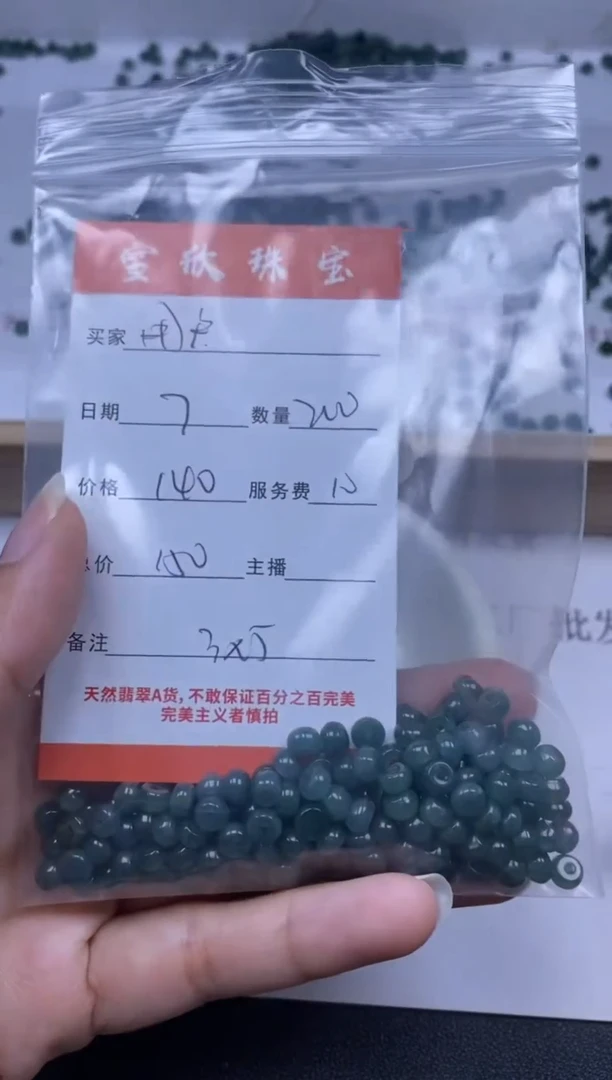 宝欣珠宝
买家
日期 7 数量 200
价格 140 服务费 10
总价 150 主播
备注 3x5
天然翡翠A货，不敢保证百分之百完美
完美主义者慎拍
批发